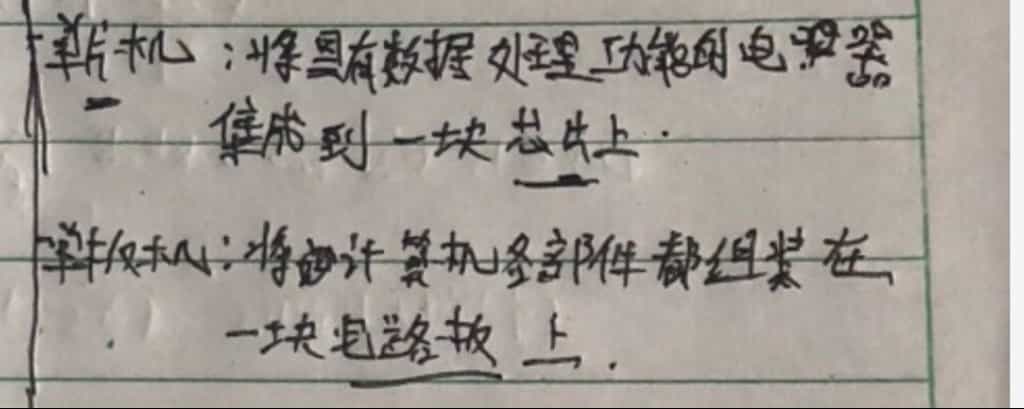 单片机：将具有数据处理功能的电器
集成到一块芯片上.
单板机：将计算机各部件都组装在
一块电路板上.